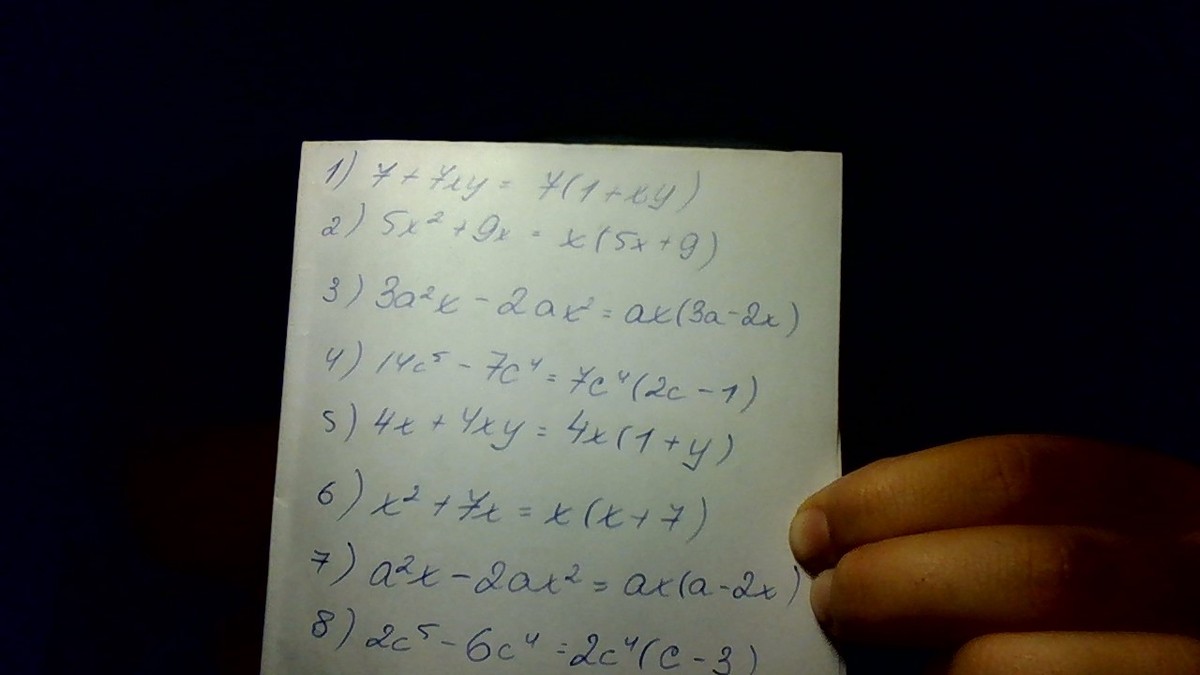 1) 7 + 7xy = 7(1 + xy)
2) 5x² + 9x = x(5x + 9)
3) 3a²x - 2ax² = ax(3a - 2x)
4) 14c⁵ - 7c⁴ = 7c⁴(2c - 1)
5) 4x + 4xy = 4x(1 + y)
6) x² + 7x = x(x + 7)
7) a²x - 2ax² = ax(a - 2x)
8) 2c⁵ - 6c⁴ = 2c⁴(c - 3)